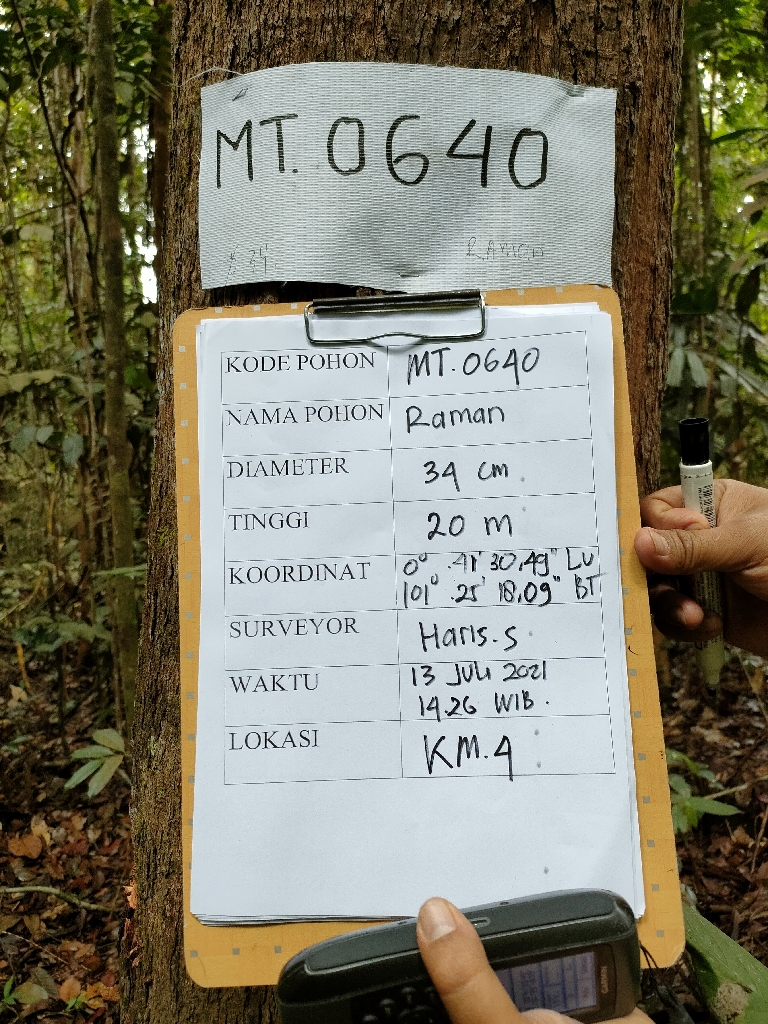 MT. 0640
RAMAN
KODE POHON MT. 0640
NAMA POHON Raman
DIAMETER 34 cm.
TINGGI 20 m
KOORDINAT 0° .41' 30,49" LU
101° .25' 18,09" BT
SURVEYOR Haris.S
WAKTU 13 Juli 2021
14.26 WIB.
LOKASI KM.4
GARMIN